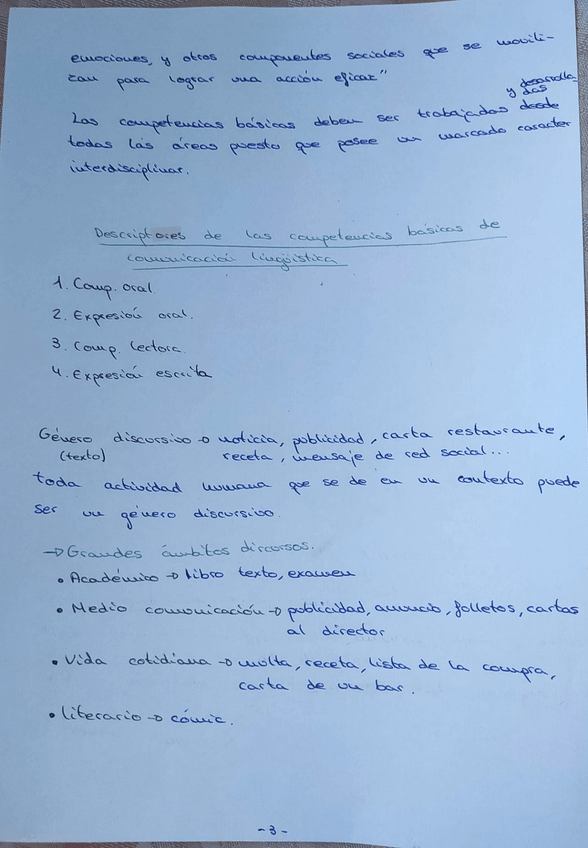 emociones, y otros componentes sociales que se movili-
zan para lograr una acción eficaz"
y desarrolla-
das
Las competencias básicas deben ser trabajadas desde
todas las áreas puesto que posee un marcado caracter
interdisciplinar.
Descriptores de las competencias básicas de
comunicación lingüística
1. Comp. oral.
2. Expresión oral.
3. Comp. lectora.
4. Expresión escrita
Género discursivo → noticia, publicidad, carta restaurante,
(texto) receta, mensaje de red social...
toda actividad humana que se de en un contexto puede
ser un género discursivo.
→ Grandes ámbitos discursos.
• Académico → libro texto, examen
• Medio comunicación → publicidad, anuncio, folletos, cartas
al director
• Vida cotidiana → multa, receta, lista de la compra,
carta de un bar.
• literario → cómic.
- 3 -